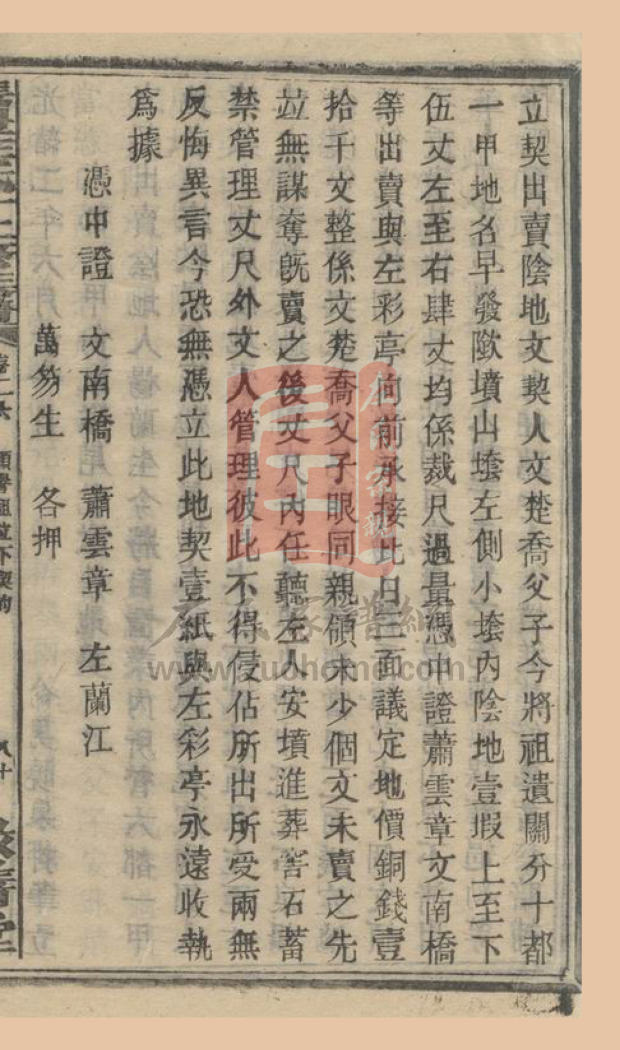 立契出賣陰地文契人文楚喬父子今將祖遺關分十都
一甲地名早發歐墳山墖左側小墖內陰地壹塅上至下
伍丈左至右肆丈均係裁尺過量憑中證蕭雲章文南橋
等出賣與左彩亭向前承接此日三面議定地價銅錢壹
拾千文整係文楚喬父子眼同親領未少個文未賣之先
並無謀奪旣賣之後丈尺內任聽左人安墳進葬窖石蓄
禁管理丈尺外文人管理彼此不得侵佔所出所受兩無
反悔異言今恐無憑立此地契壹紙與左彩亭永遠收執
爲據
憑中證 文南橋 蕭雲章 左蘭江
萬芴生 各押
www.zuohome.com